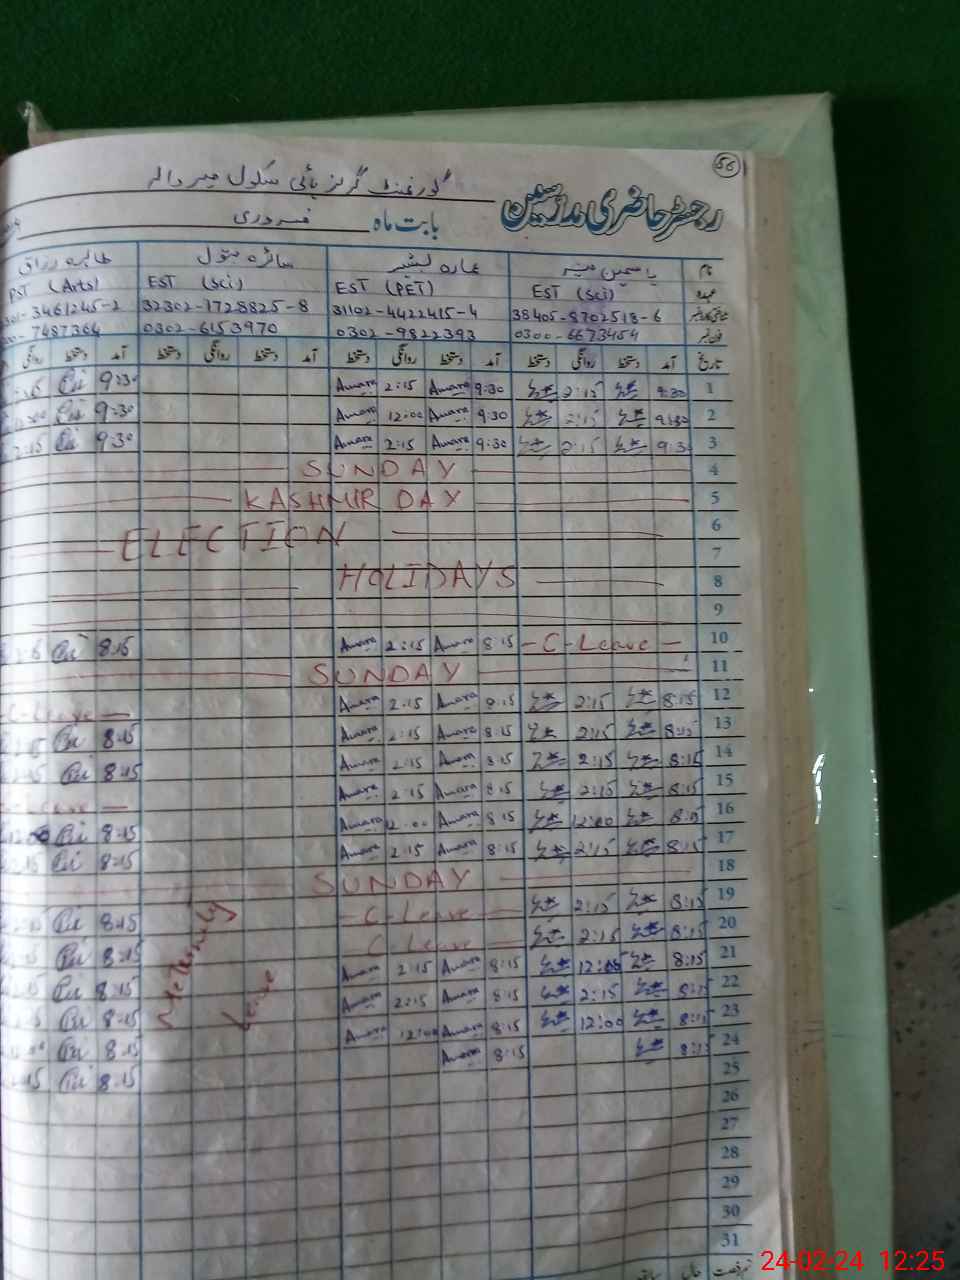 56
رجسٹر حاضری مدرسین گورنمنٹ گرلز ہائی سکول میر والہ
بابت ماہ فروری
نام یاسمین منیر عمارہ بشیر سائرہ بتول طاہرہ رزاق
عہدہ EST (Sci) EST (PET) EST (Sci) PST (Arts)
38405-8702518-6 31102-4422415-4 32302-1728825-8 3461245-2
فون نمبر 0300-6673454 0302-9822393 0302-6153970 7487364
تاریخ آمد دستخط روانگی دستخط آمد دستخط روانگی دستخط آمد دستخط روانگی دستخط آمد دستخط روانگی
1 9:30 2:15 9:30 Amara 2:15 Amara 9:30
2 9:30 2:15 9:30 Amara 12:00 Amara 9:30
3 9:3 2:15 9:30 Amara 2:15 Amara 9:30 2:15
4 SUNDAY
5 KASHMIR DAY
6 ELECTION
7
8 HOLIDAYS
9
10 - C-Leave - 8:15 Amara 2:15 Amara 8:15
11 SUNDAY
12 8:15 2:15 8:15 Amara 2:15 Amara C-Leave -
13 8:15 2:15 8:15 Amara 2:15 Amara 8:15
14 8:15 2:15 8:15 Amara 2:15 Amara 8:15
15 8:15 2:15 8:15 Amara 2:15 Amara - Leave -
16 8:15 12:00 8:15 Amara 12:00 Amara 8:15 12:00
17 8:15 2:15 8:15 Amara 2:15 Amara 8:15
18 SUNDAY
19 8:15 2:15 - C-Leave - 8:15
20 8:15 2:15 C Leave - 8:15
21 8:15 12:00 8:15 Amara 2:15 Amara 8:15
22 8:15 2:15 8:15 Amara 2:15 Amara 8:15
23 8:15 12:00 8:15 Amara 12:00 Amara 8:15
24 8:15 8:15 Amara 8:15
Meternity Leave
25
26
27
28
29
30
31
24-02-24 12:25